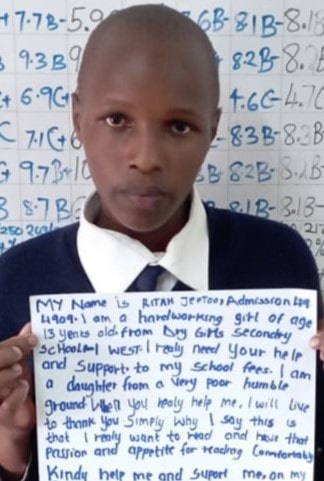 + 7.7B- 5.9
.6B- 8.1B- 8.1
9.3B
8.2B- 8.2
+ 6.9C+
4.6C- 4.7C
C 7.1C+
8.3B- 8.3B
+ 9.7B+
8.2B- 8.
B 8.7B
8.1B-
MY Name is RITAH JEPTOO, Admission
4909. I am a hardworking girl of age
13 years old from Dry Girls Secondry
SCHOOL WEST. I realy need your help
and Support to my School fees. I am
a daughter from a very poor humble
ground. When you realy help me, I will live
to thank you Simply Why I say this is
that I realy want to read and have that
Passion and appetite for reading Comfortably
Kindy help me and Suport me, on my